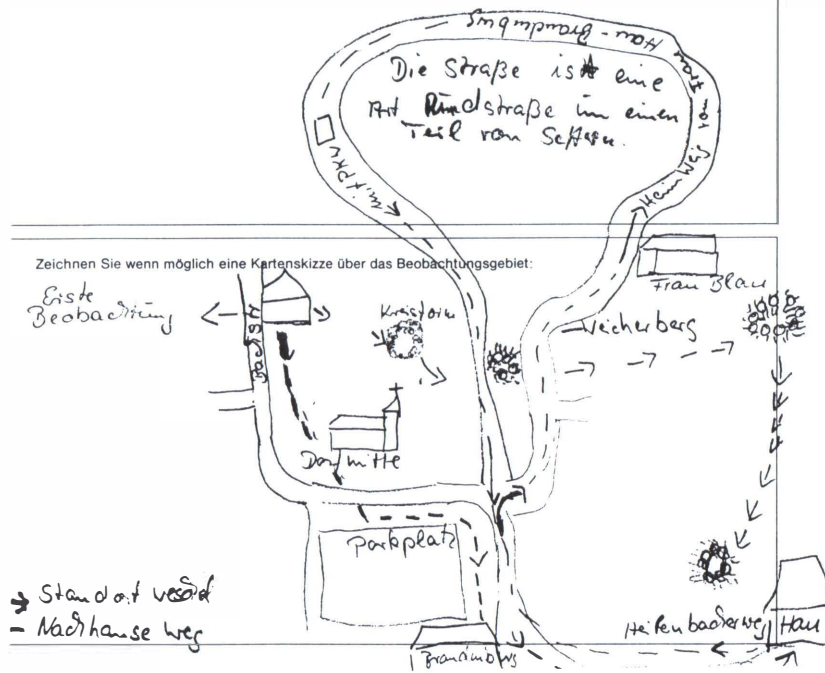 Frau Hau - Brandenburg
Die Straße ist eine
Art Rundstraße im einen
Teil von
mit PKW
Heimweg von Frau
Zeichnen Sie wenn möglich eine Kartenskizze über das Beobachtungsgebiet:
Erste
Beobachtung
Bachstr
Kreisform
Frau Blau
Weicherberg
Dorfmitte
Parkplatz
Standort
Nachhause weg
Heifenbacherweg
Hau
Brandenburg